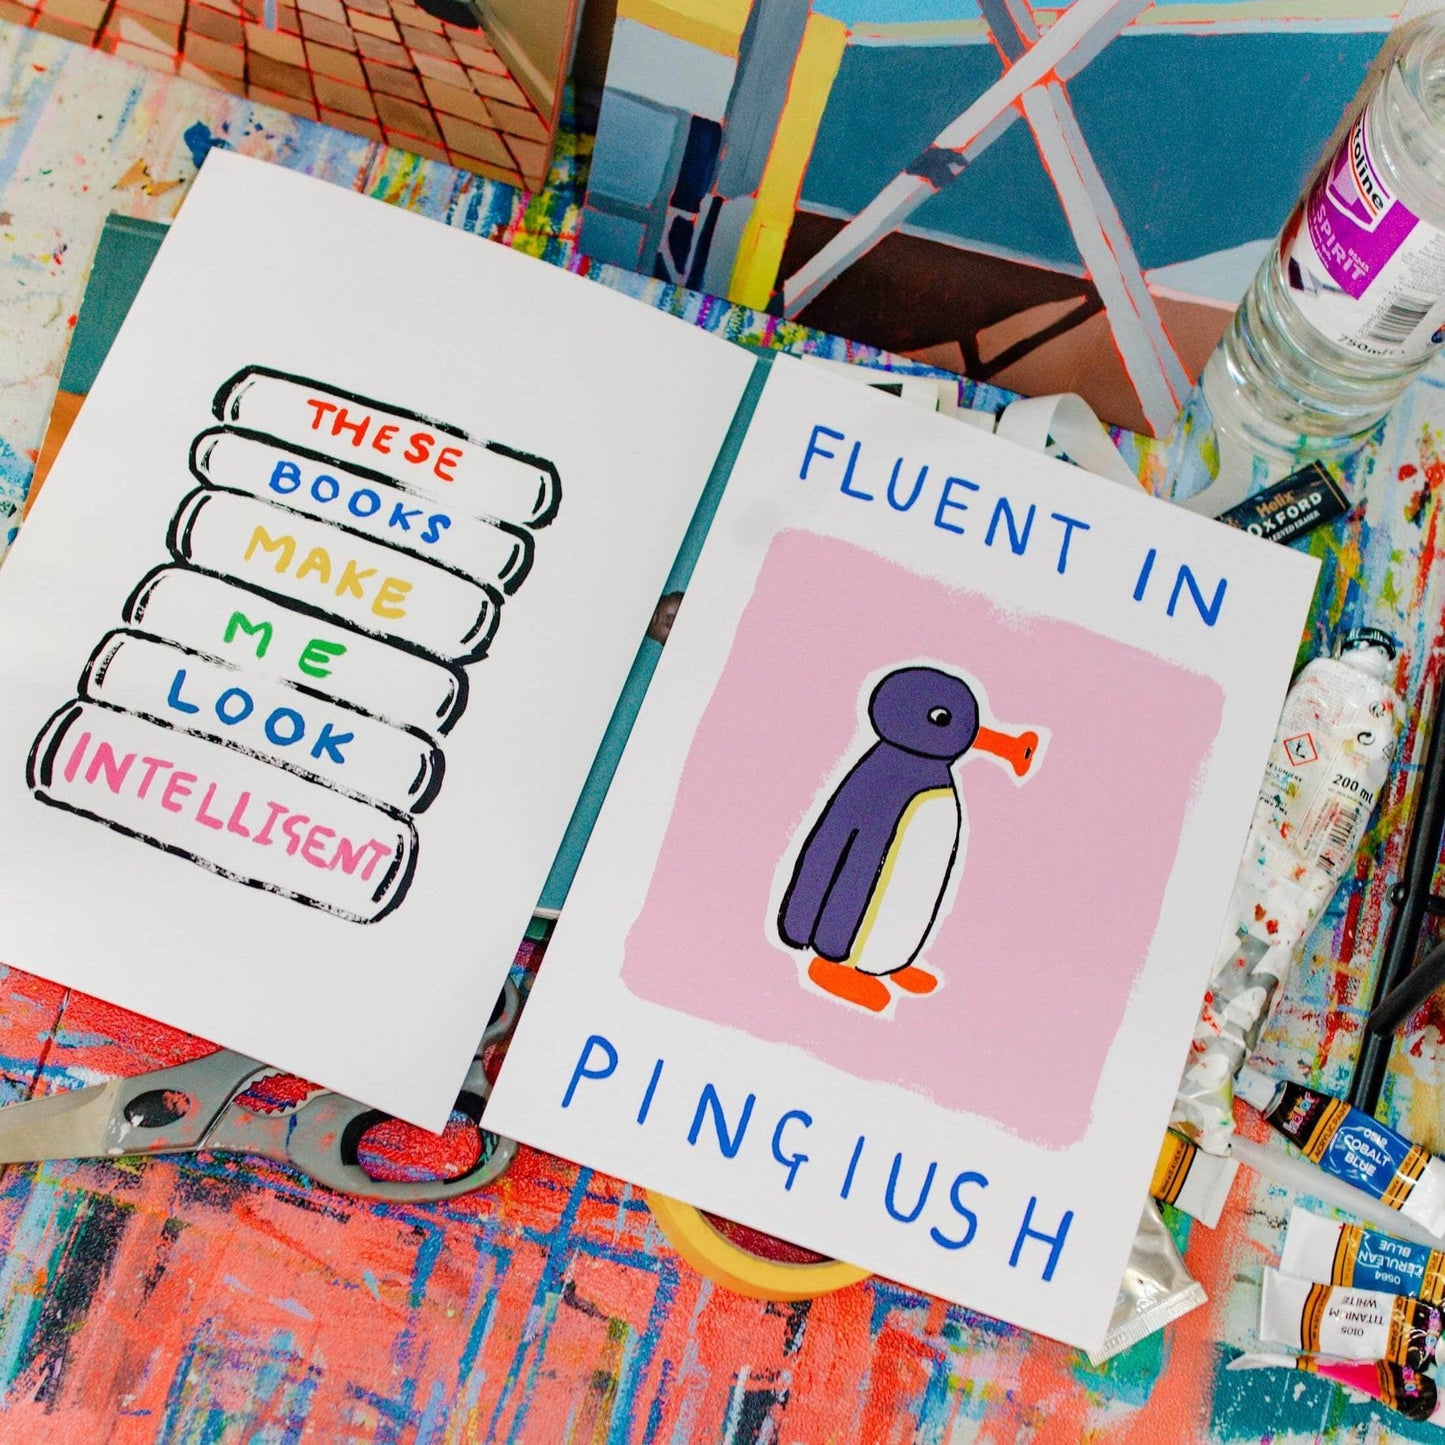 THESE
BOOKS
MAKE
ME
LOOK
INTELLIGENT
FLUENT IN
PINGIUSH
SPIRIT
750ml
Helix
OXFORD
SLEEVED ERASER
200 mL
COBALT
BLUE
CERULEAN
BLUE
0564
TITANIUM
WHITE
0105